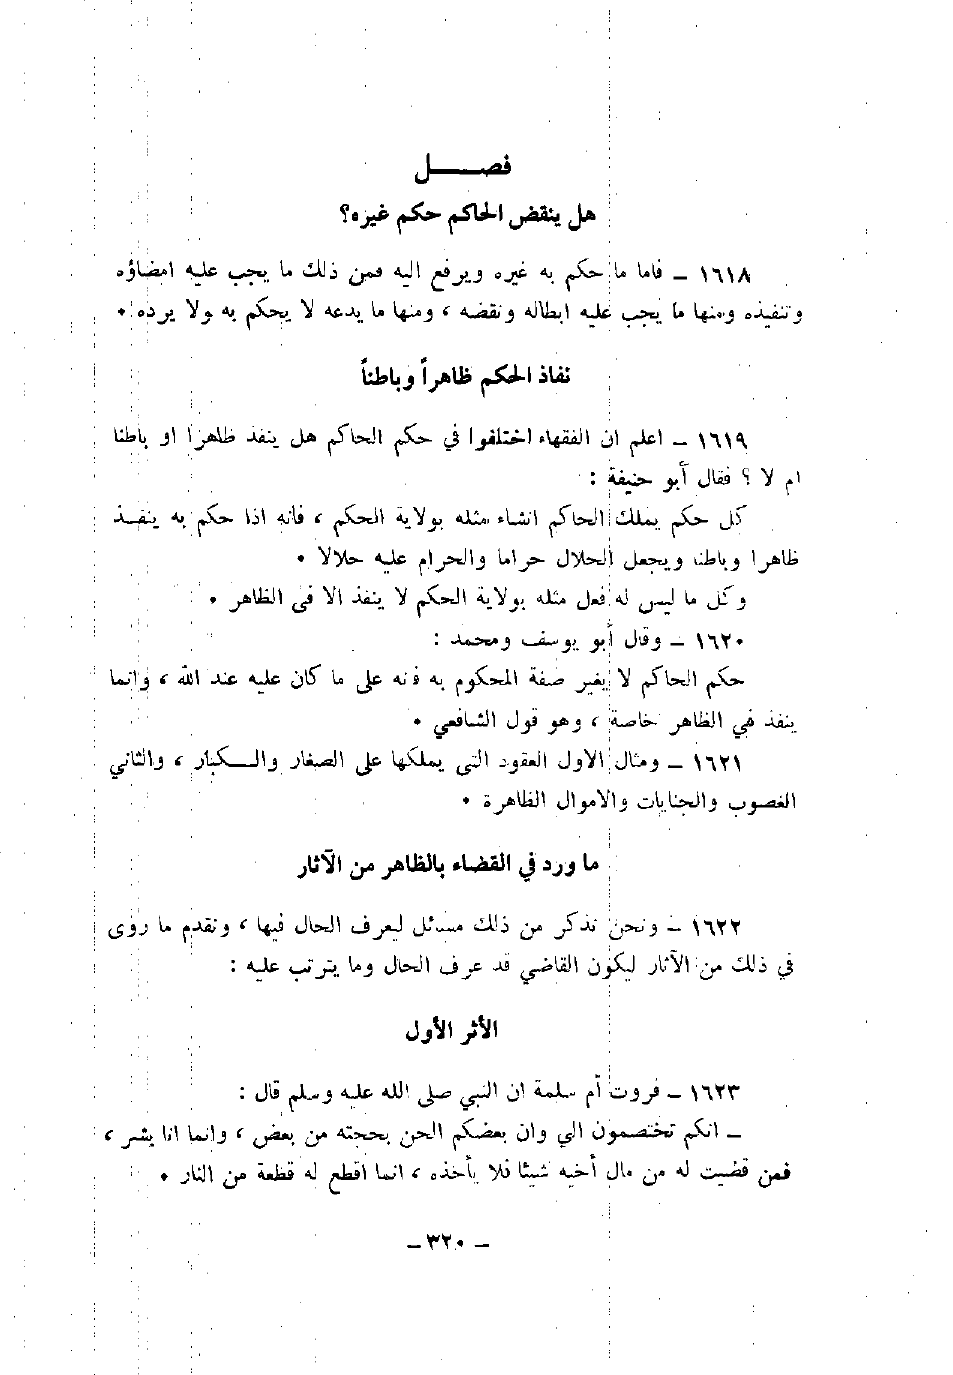 فصـــــل
هل ينقض الحاكم حكم غيره؟
١٦١٨ – فاما ما حكم به غيره ويرفع اليه فمن ذلك ما يجب عليه امضاؤه
وتنفيذه ومنها ما يجب عليه ابطاله ونقضه ، ومنها ما يدعه لا يحكم به ولا يرده ٠
نفاذ الحكم ظاهراً وباطناً
١٦١٩ – اعلم ان الفقهاء اختلفوا في حكم الحاكم هل ينفذ ظاهرا او باطنا
ام لا ؟ فقال أبو حنيفة :
كل حكم يملك الحاكم انشاء مثله بولاية الحكم ، فانه اذا حكم به ينفــذ
ظاهرا وباطنا ويجعل الحلال حراما والحرام عليه حلالا ٠
وكل ما ليس له فعل مثله بولاية الحكم لا ينفذ الا فى الظاهر ٠
١٦٢٠ – وقال أبو يوسف ومحمد :
حكم الحاكم لا يغير صفة المحكوم به فانه على ما كان عليه عند الله ، وانما
ينفذ في الظاهر خاصة ، وهو قول الشافعي ٠
١٦٢١ – ومثال الاول العقود التى يملكها على الصغار والـــكبار ، والثاني
الغصوب والجنايات والاموال الظاهرة ٠
ما ورد في القضاء بالظاهر من الآثار
١٦٢٢ – ونحن نذكر من ذلك مسائل ليعرف الحال فيها ، ونقدم ما روى
في ذلك من الآثار ليكون القاضي قد عرف الحال وما يترتب عليه :
الأثر الأول
١٦٢٣ – فروت أم سلمة ان النبي صلى الله عليه وسلم قال :
– انكم تختصمون الي وان بعضكم الحن بحجته من بعض ، وانما انا بشر ،
فمن قضيت له من مال أخيه شيئا فلا يأخذه ، انما اقطع له قطعة من النار ٠
– ٣٢٠ –